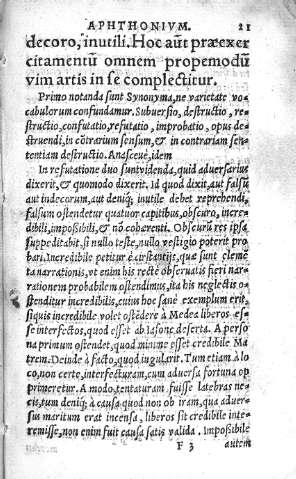 APHTHONIVM. 21
decoro, inutili. Hoc aūt præexer
citamentū omnem propemodū
vim artis in se complectitur.
Primo notanda sunt Synonyma, ne varietate vo-
cabulorum confundamur. Subuersio, destructio, re-
structio, confutatio, refutatio, improbatio, opus de-
struendi, in cōtrariam sensum, & in contrariam sen-
tentiam destructio. Anasceue, idem
In refutatione duo sunt videnda, quid aduersarius
dixerit, & quomodo dixerit. Id quod dixit, aut falsū
aut indecorum, aut deniq; inutile debet reprehendi,
falsum ostendetur quatuor capitibus, obscuro, incre-
dibili, impossibili, & nō coherenti. Obscurū res ipsa
suppeditabit, si nullo teste, nullo vestigio poterit pro
bari. Incredibile petitur è circūstātijs, quæ sunt elemē
ta narrationis, vt enim his rectè obseruatis fieri nar-
rationem probabilem ostendimus, ita his neglectis o-
stenditur incredibilis, cuius hoc sanè exemplum erit,
si quis incredibile volet ostēdere à Medea liberos es-
se interfectos, quod esset ab Iasone deserta. A perso
na primum ostendet, quod minime esset credibile Ma
trem. Deinde à facto, quod iugularit. Tum etiam à lo
co, non certè, interfecturam, cum aduersa fortuna op
primeretur. A modo, tentaturam fuisse latebras ne-
cis, tum deniq; à causa quod non ob iram, qua aduer-
sus maritum erat incensa, liberos sit credibile inte-
remisse, non enim fuit causa satis valida. Impoßibile
F 3 autem